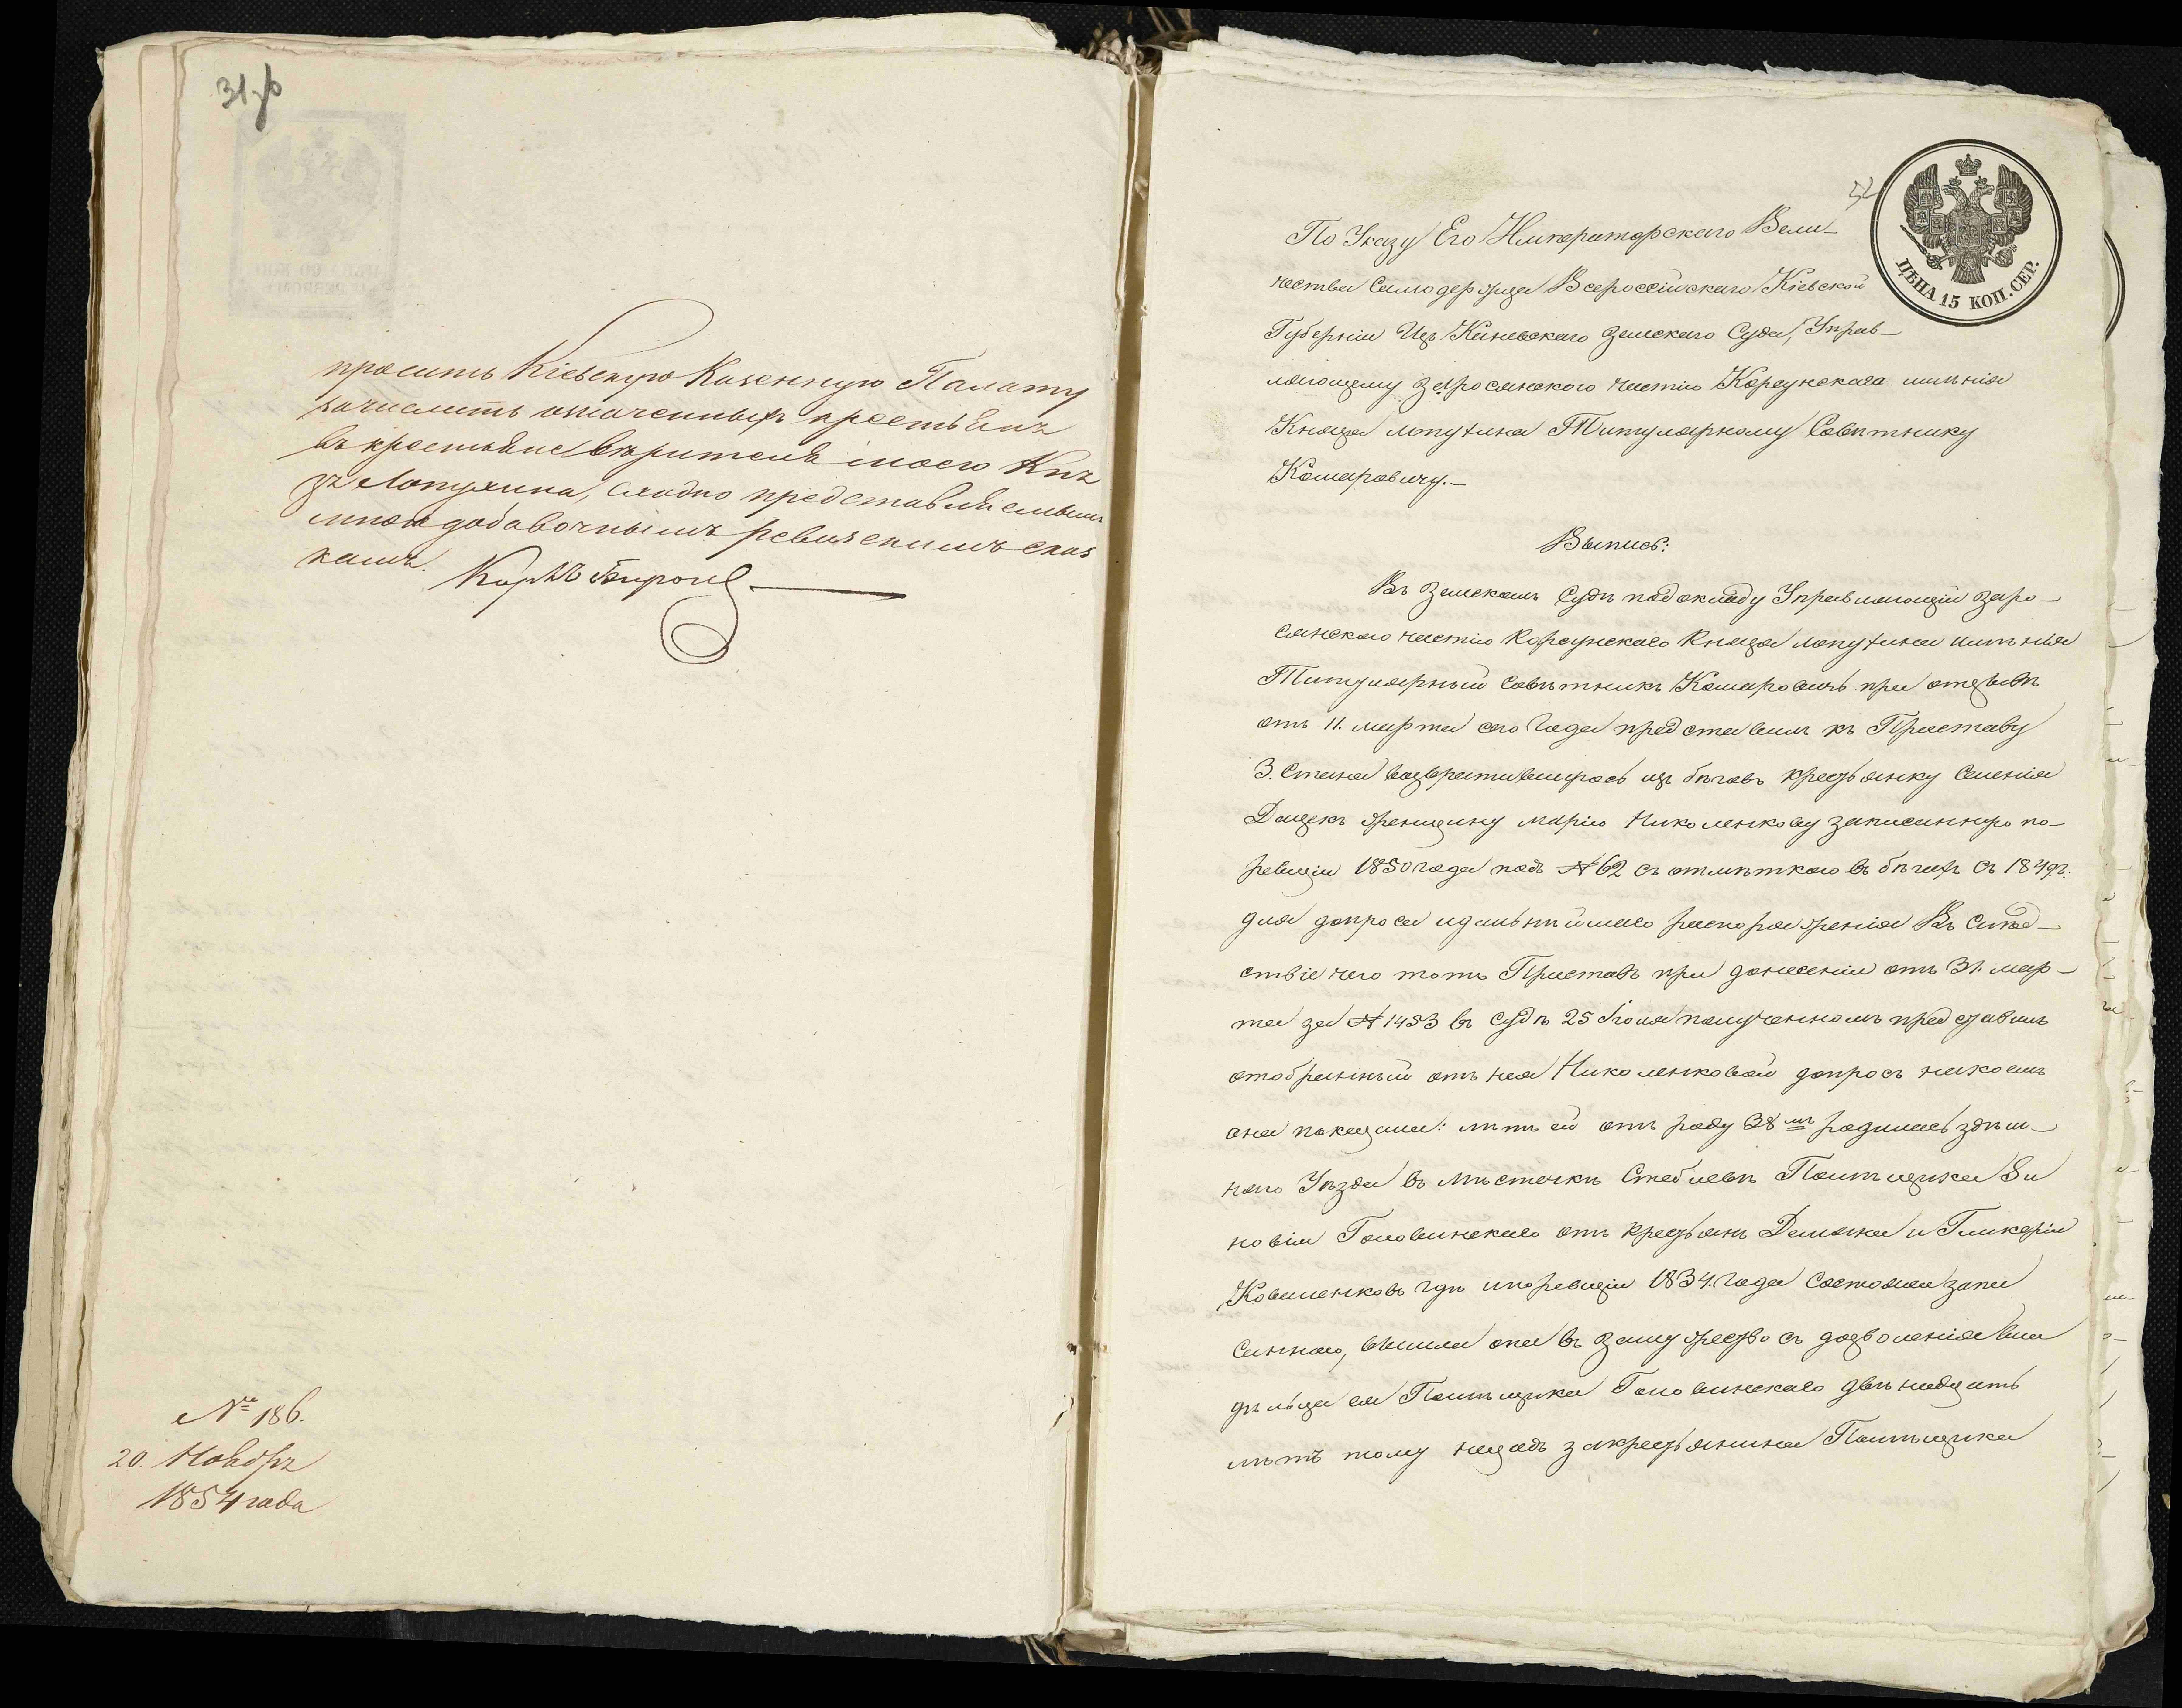 31об
просить Кіевскую Казенную Палату
зачислить означенныхъ крестьянъ
въ крестьяне вѣрителя моего Кня
зя Лопухина, сходно представляемымъ
мною добавочнымъ ревизскимъ сказ
камъ.
№ 186.
20. Ноября
1854 года
32
ЦѢНА 15 КОП. СЕР.
По Указу Его Императорскаго Вели-
чества Самодержца Всероссійскаго Кіевской
Губерніи Изъ Каневскаго Земскаго Суда, Управ-
ляющему Заросянского частію Корсунскаго имѣнія
Князя Лопухина Титулярному Совѣтнику
Комаровичу.-
Выпись:
Въ Земскомъ Судѣ по докладу Управляющій Заро-
сянскою частію Корсунскаго Князя Лопухина имѣнія
Титулярный Совѣтникъ Комаровичъ при отзывѣ
отъ 11. марта сего года представилъ къ Приставу
3. Стана возвратившуюсь изъ бѣговъ крестьянку Селенія
женщину Марію Николенкову записанную по-
ревизіи 1850 года подъ № 62 съ отмѣткою въ бѣгахъ съ 1849 г.
для допроса и дальнѣйшаго распоряженія Въ Слѣд-
ствіе чего тотъ Приставъ при донесеніи отъ 31. мар-
та за № 1453 въ Судѣ 25 Іюля полученномъ представилъ
отобранный отъ нея Николенковой допросъ накоемъ
она показала: лѣтъ ей отъ роду 38мъ родилась здѣш-
наго Уѣзда въ мѣстечкѣ Стеблевѣ Помѣщика Зи
новія Головинскаго отъ крестьянъ Демяна и Гликеріи
гдѣ и поревизіи 1834. года Состояла запи
санною, вышла она въ замужество съ дозволенія вла
дѣльца ея Помѣщика Головинскаго двѣнадцать
лѣтъ тому назадъ за крестьянина Помѣщика